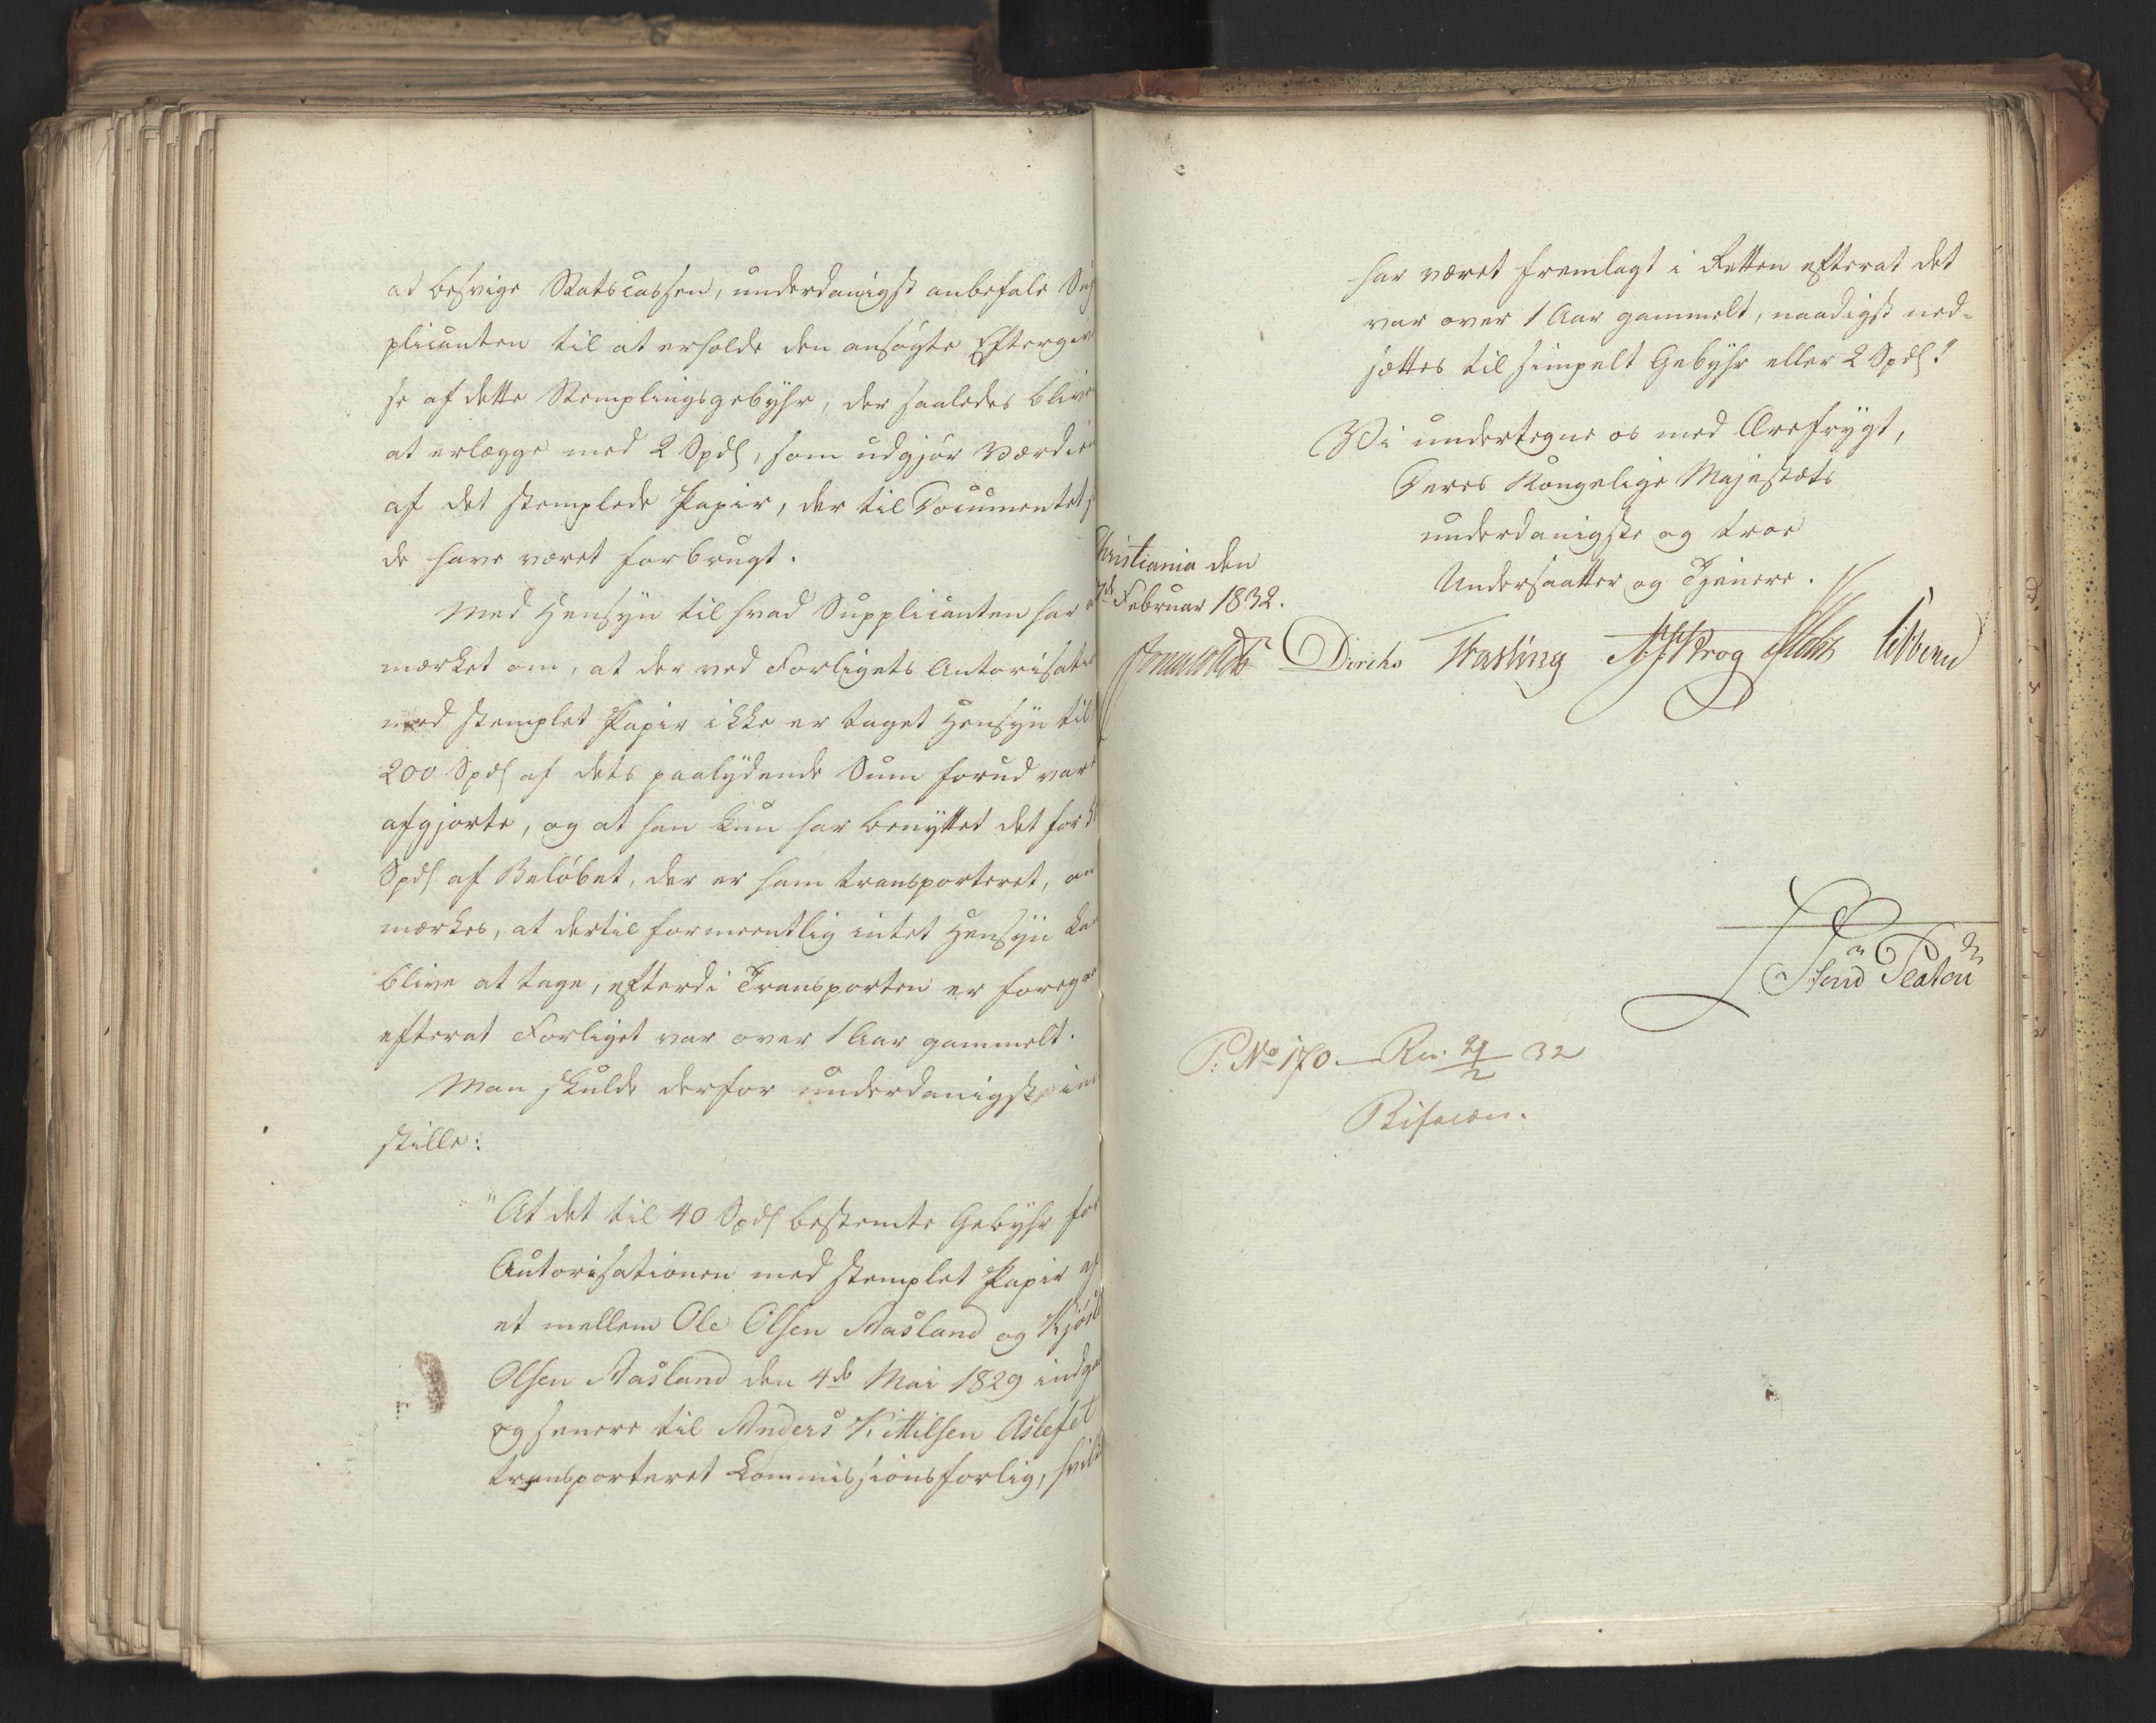 ad besvige Statscassen, underdanigst anbefale Sup
plicanten til at erholde den ansøgte Eftergivel
se af dette Stemplingsgebyhr, der saaledes bliver
at erlægge med 2 Spdl, som udgjør Værdien
af det stemplede Papir, der til Documentet
de have været forbrugt.
Med Hensyn til hvad Supplicanten har
mærket om, at der ved Forligets Autorisation
med stemplet Papir ikke er taget Hensyn til
200 Spdl af dets paalydende Sum forud vare
afgjorte, og at han kun har benyttet det for
Spdl af Beløbet, der er ham transporteret, an
mærkes, at dertil formeentlig intet Hensyn kan
blive at tage, efterdi Transporten er foregaa
efterat Forliget var over 1 Aar gammelt.
Man skulde derfor underdanigst ind
stille:
"At det til 40 Spdl bestemte Gebyhr for
Autorisationen med stemplet Papir af
et mellem Ole Olsen Aasland og
Olsen Aasland den 4de Mai 1829 indga
og senere til Anders Kittilsen Aslefet
transporteret Commissionsforlig, hvilk
har været fremlagt i Retten efterat det
var over 1 Aar gammelt, naadigst ned-
sættes til simpelt Gebyhr eller 2 Spdl."
Vi undertegne os med Ærefrygt,
Deres Kongelige Majestæts
underdanigste og troe
Undersaatter og Tjenere.
Christiania den
7de Februar 1832.
Diriks Fasting Krog Holst
P: No 170. 21/2 32